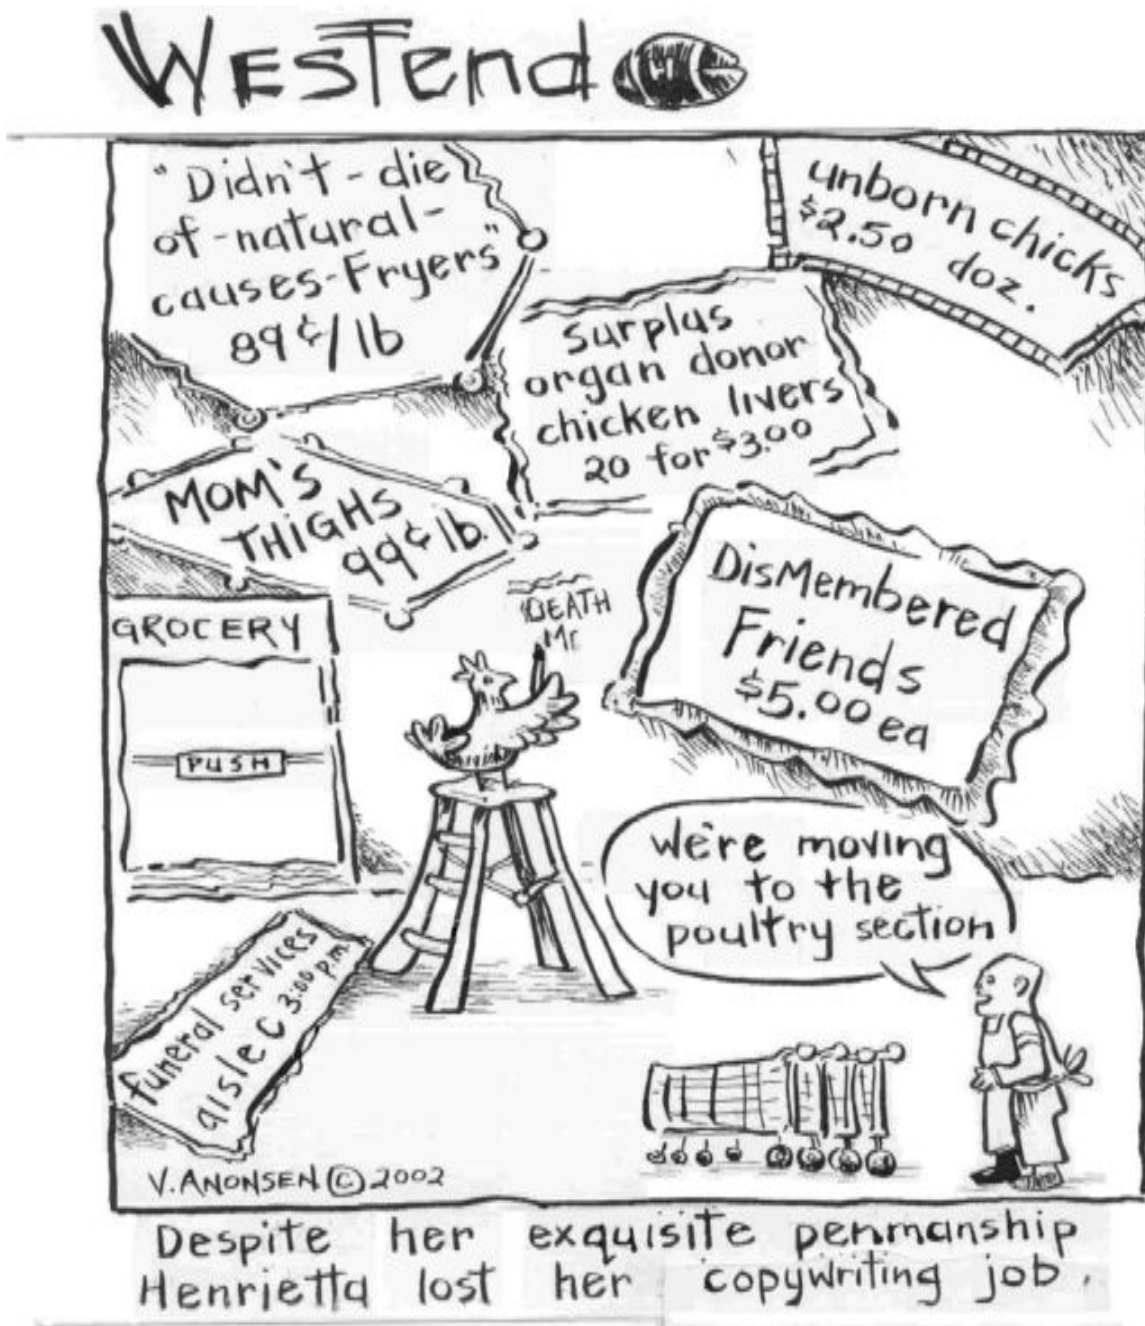 WESTend
"Didn't-die
of-natural-
causes-Fryers"
89¢/lb
unborn chicks
$2.50 doz.
surplus
organ donor
chicken livers
20 for $3.00
MOM'S
THIGHS
99¢ lb.
DisMembered
Friends
$5.00 ea
GROCERY
PUSH
DEATH
Mc
We're moving
you to the
poultry section
funeral services
aisle C 3:00 p.m.
V. ANONSEN © 2002
Despite her exquisite penmanship
Henrietta lost her copywriting job.